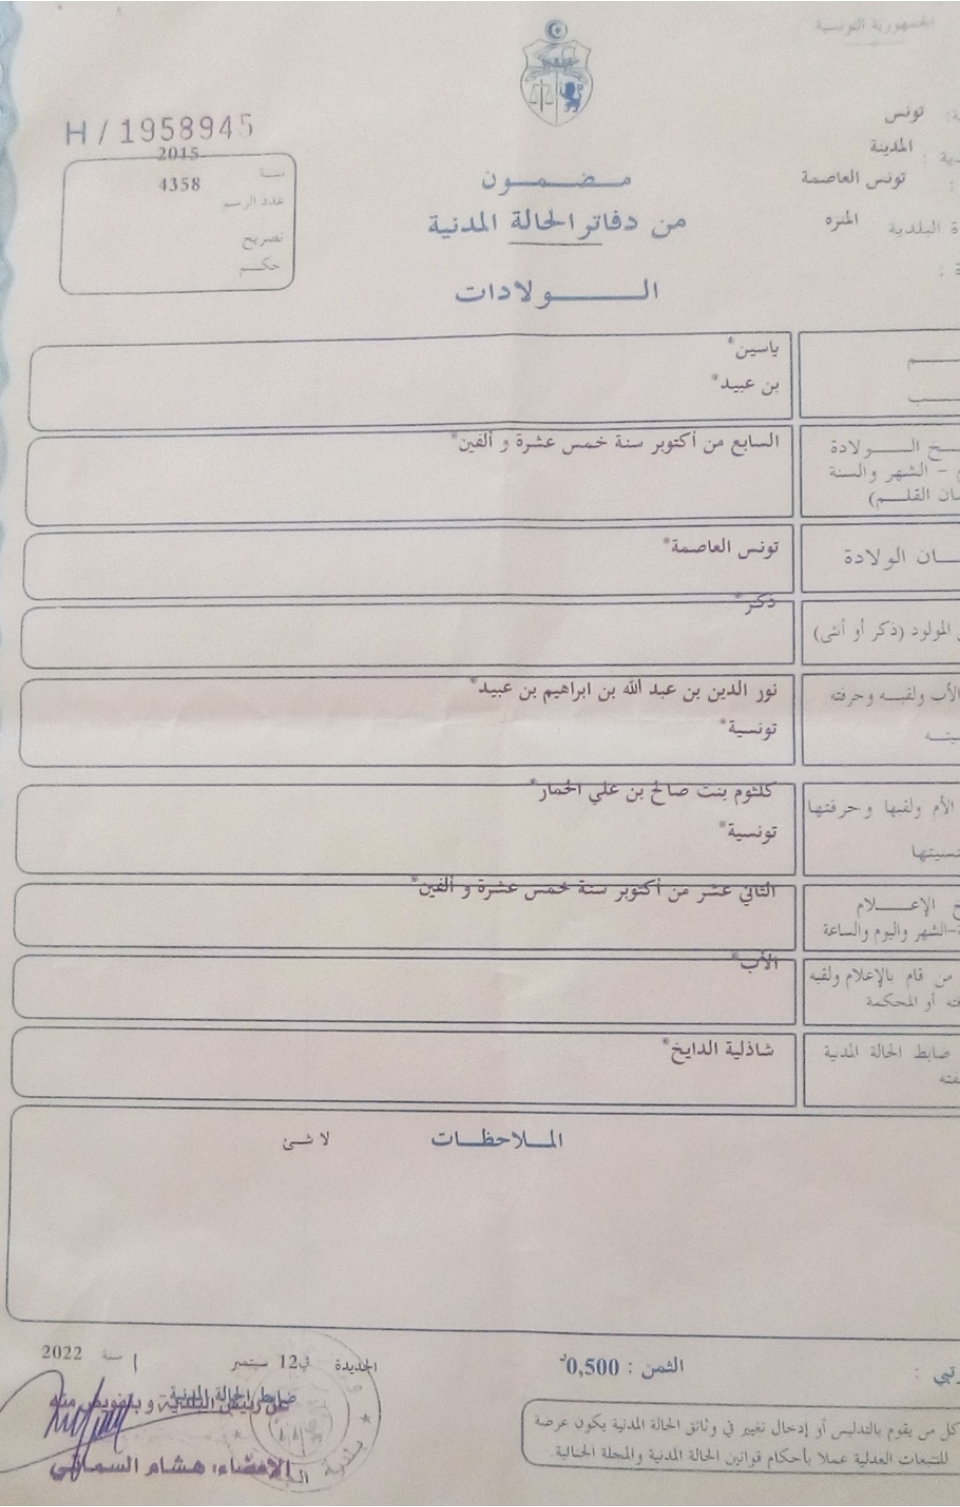 الجمهورية التونسية
H / 1958945
2015
سنة
4358
عدد الرسم
تصريح
حكم
تونس
المدينة
تونس العاصمة
البلدية المنزه
مضمون
من دفاتر الحالة المدنية
الولادات
ياسين*
بن عبيد*
الولادة
السابع من أكتوبر سنة خمس عشرة و ألفين*
– الشهر والسنة
القلم)
الولادة
تونس العاصمة*
المولود (ذكر أو أنثى)
ذكر*
الأب ولقبه وحرفته
نور الدين بن عبد الله بن ابراهيم بن عبيد*
تونسية*
الأم ولقبها وحرفتها
كلثوم بنت صالح بن علي الخمار*
تونسية*
الإعلام
الثاني عشر من أكتوبر سنة خمس عشرة و ألفين*
-الشهر واليوم والساعة
من قام بالإعلام ولقبه
الأب*
أو المحكمة
ضابط الحالة المدنية
شاذلية الدايخ*
الملاحظات
لا شئ
الثمن : 0,500د
الجديدة في 12 سبتمبر سنة 2022
ضابط الحالة المدنية
عن رئيس البلدية و بتفويض منه
الإمضاء: هشام السماتي
كل من يقوم بالتدليس أو إدخال تغيير في وثائق الحالة المدنية يكون عرضة
للتتبعات العدلية عملا بأحكام قوانين الحالة المدنية والمجلة الجنائية.